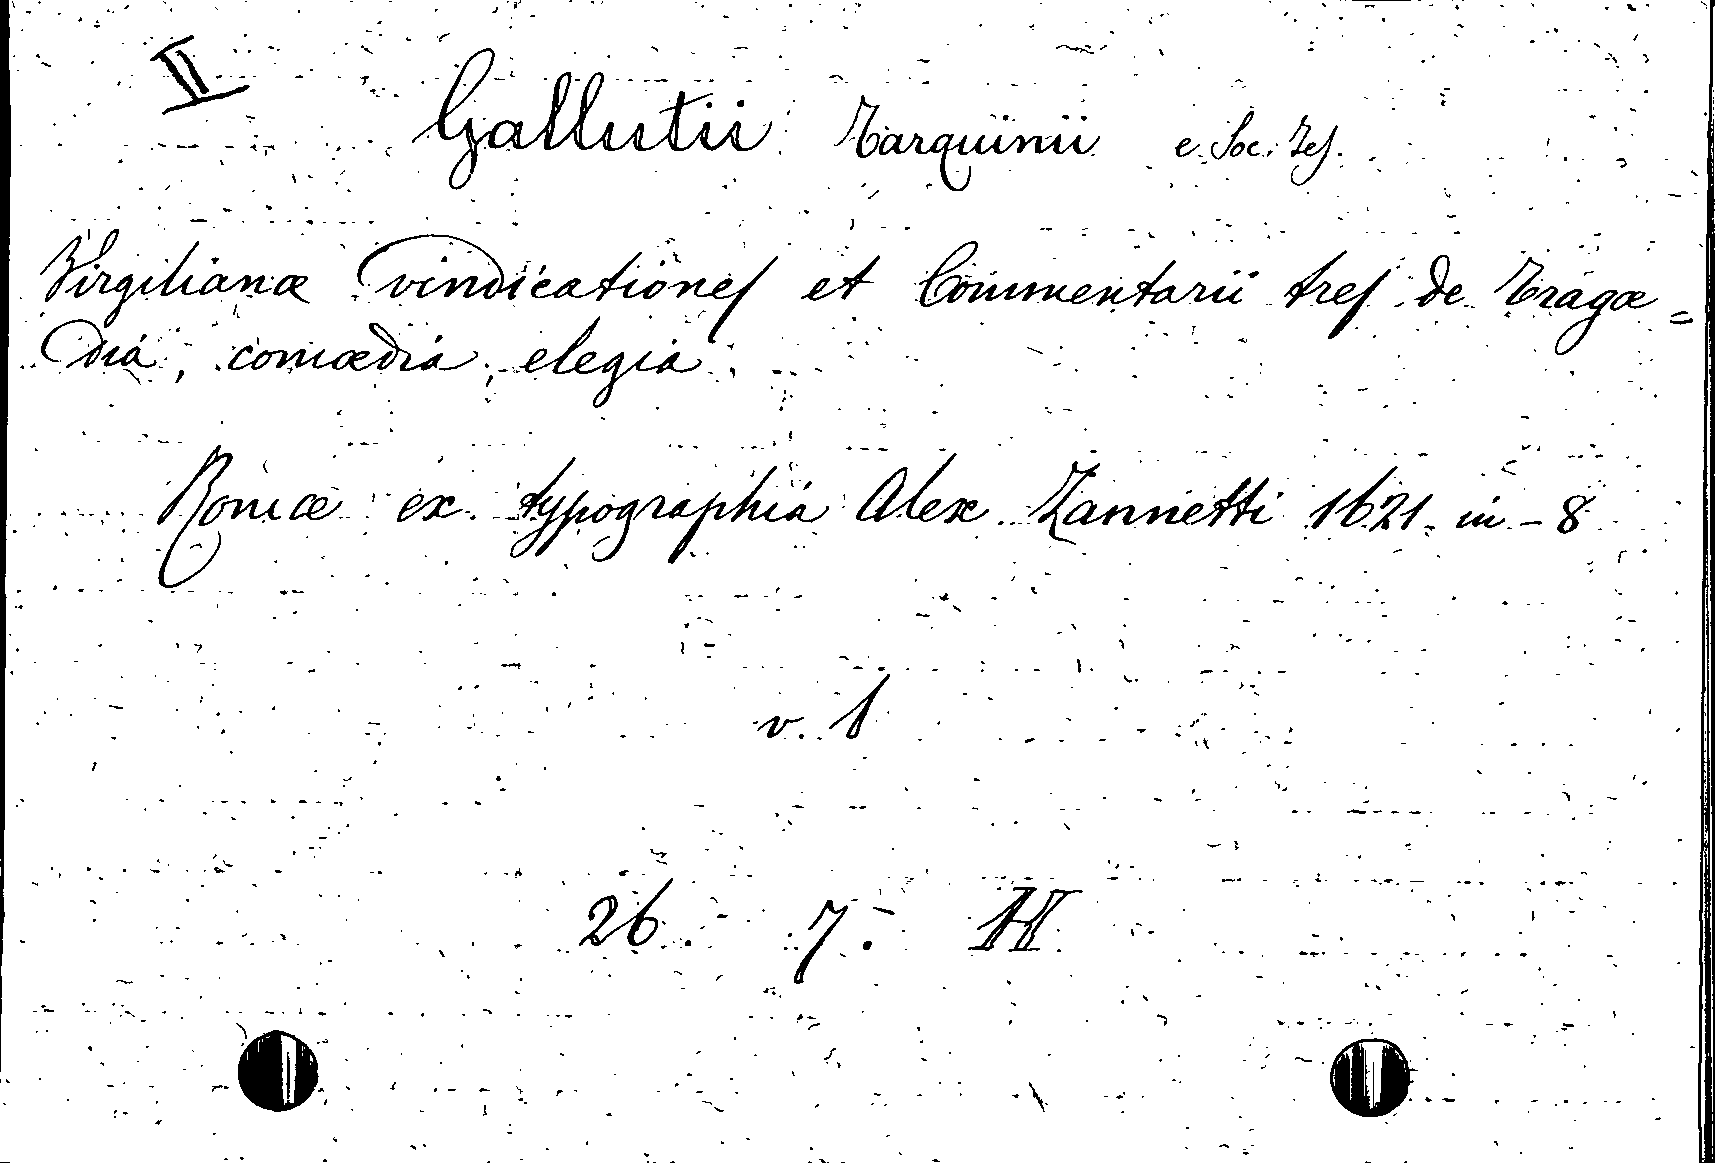 II
Gallutii Tarquinii e Soc. Jes.
Virgilianæ vindicationes et Commentarii tres de Tragœ=
dia, comœdia, elegia.
Romæ ex typographia Alex Zannetti 1621. in-8
v. 1
26. 7. H